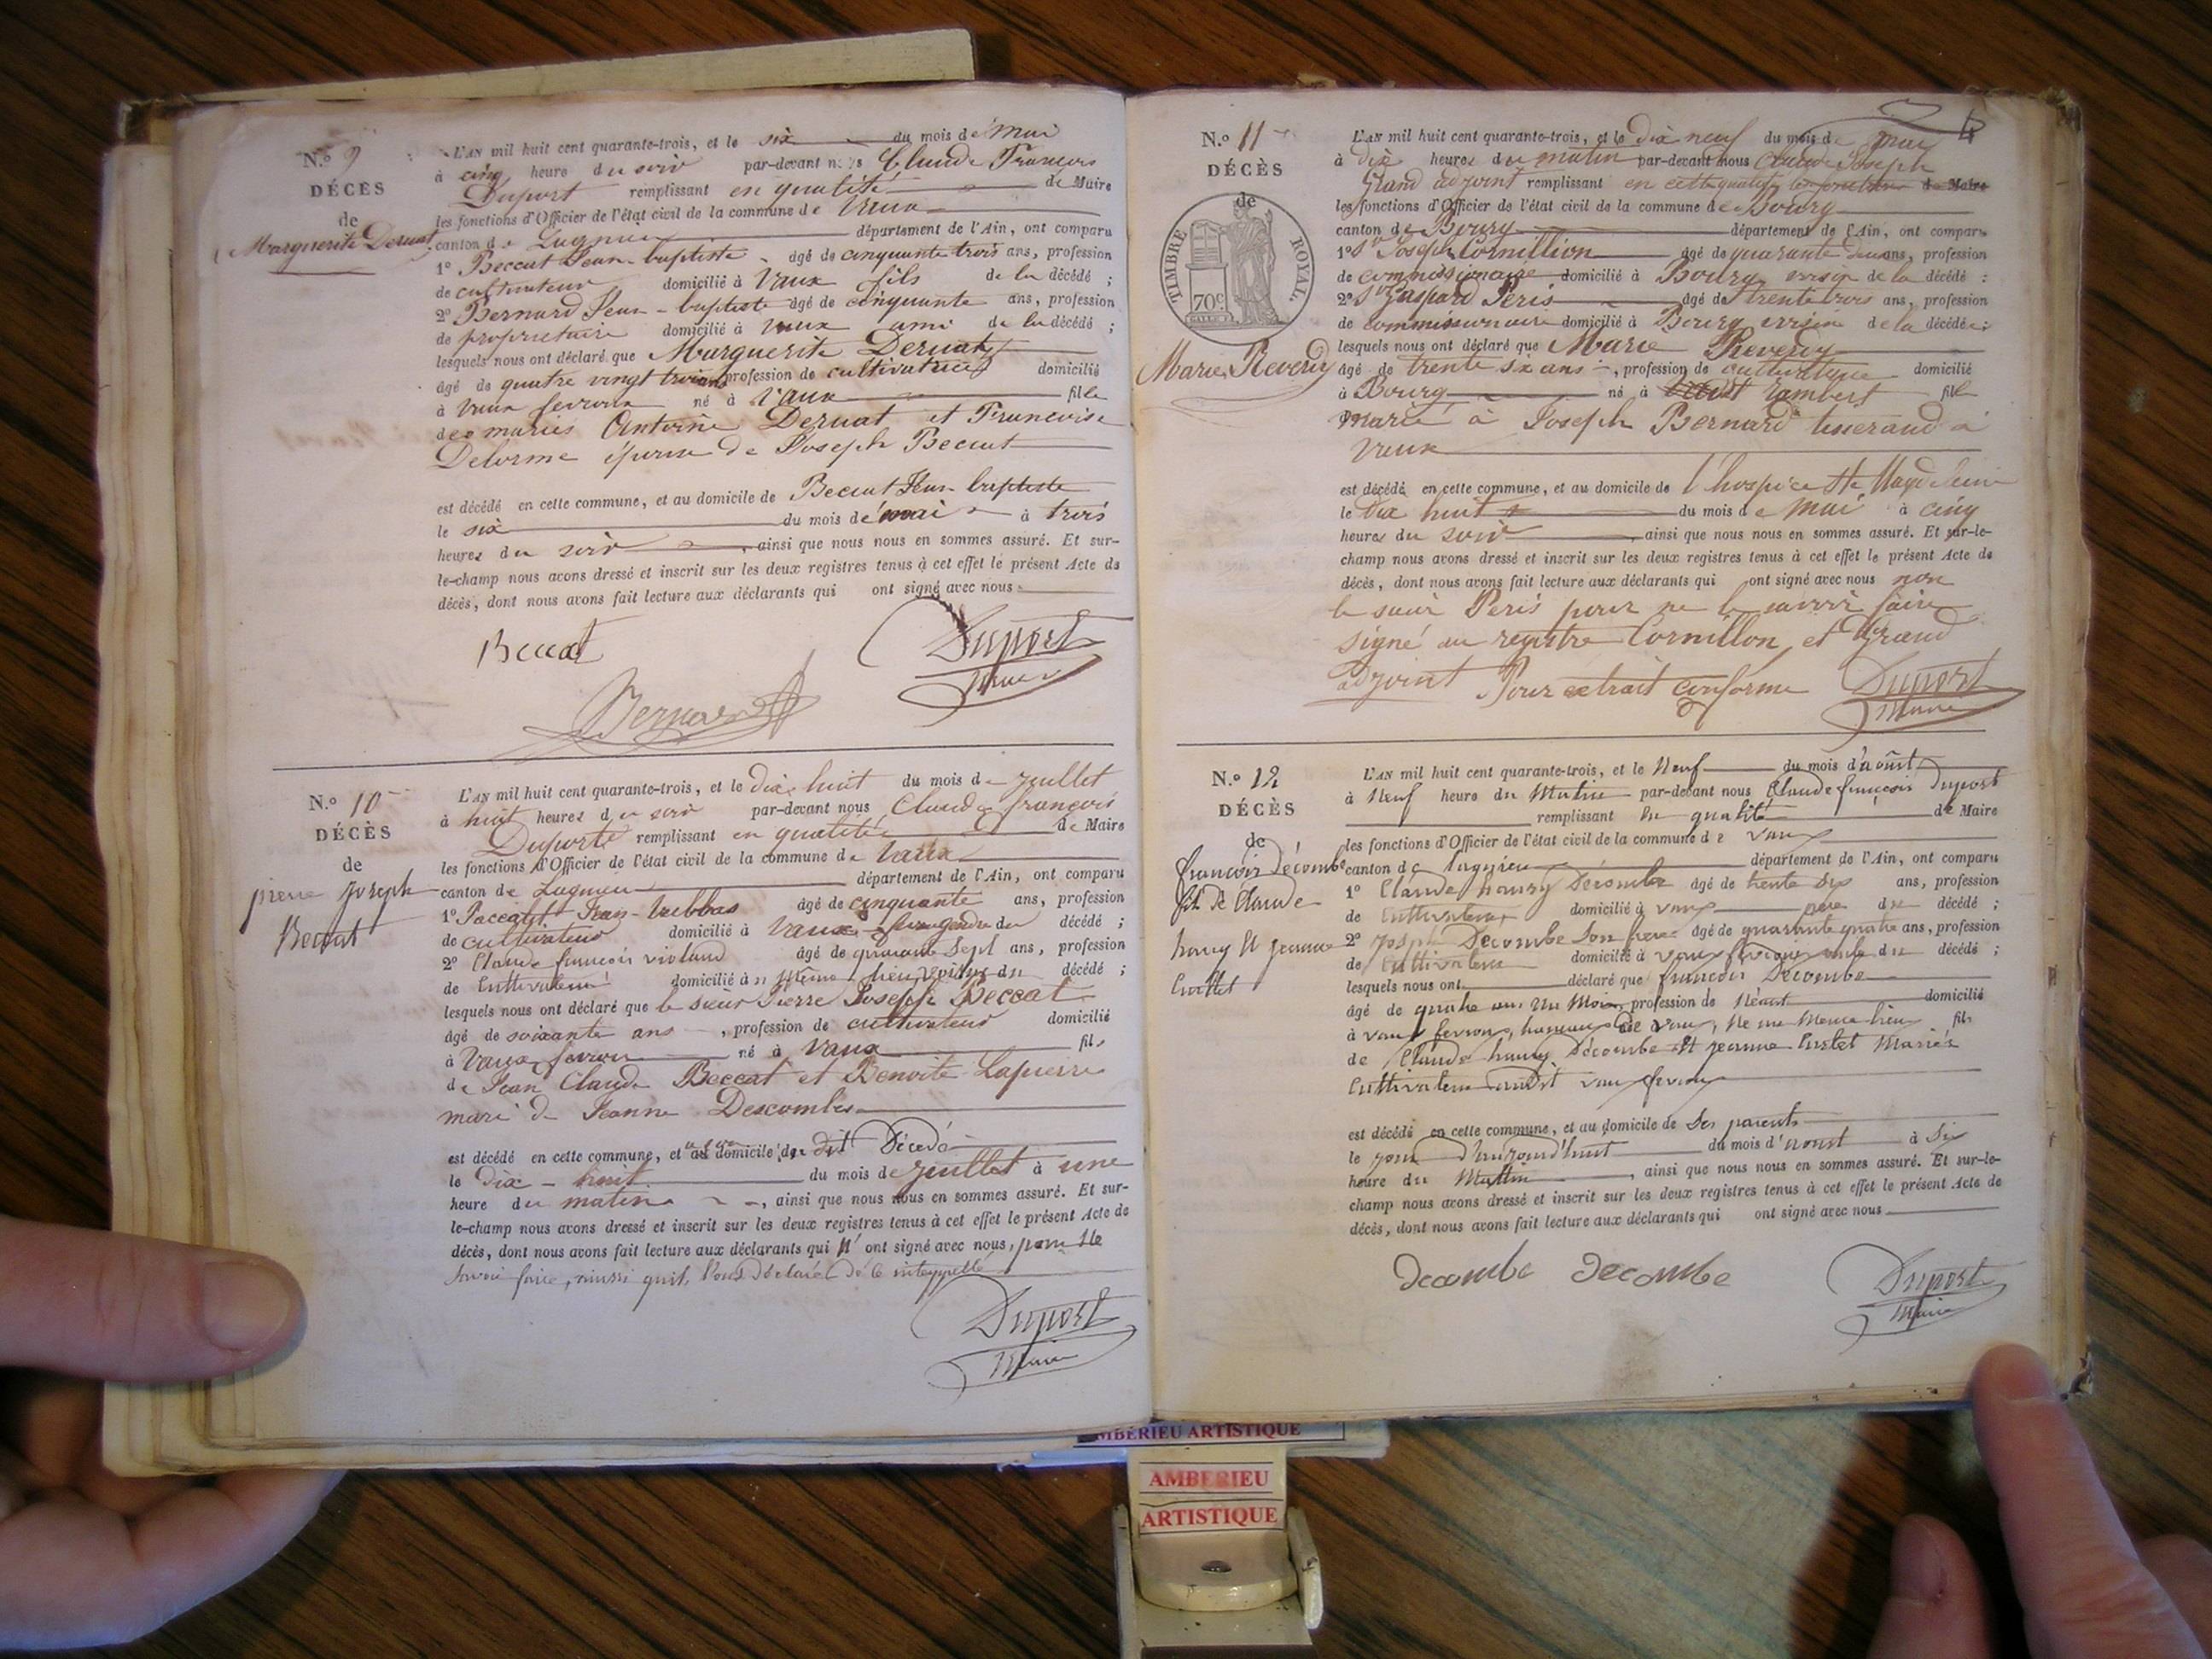 N.º 9
DÉCÈS
de
Marguerite Deruat
L'AN mil huit cent quarante-trois, et le six du mois de Mai
à cinq heure du soir par-devant nous Claude François
Duport remplissant en qualité de Maire
les fonctions d'Officier de l'état civil de la commune de Vaux
canton de Lagnieu département de l'Ain, ont comparu
1º Beccat Jean-baptiste âgé de cinquante trois ans, profession
de cultivateur domicilié à Vaux fils de la décédé ;
2º Bernard Jean-baptiste âgé de cinquante ans, profession
de propriétaire domicilié à Vaux ami de la décédé ;
lesquels nous ont déclaré que Marguerite Deruat
âgé de quatre vingt trois ans profession de cultivatrice domicilié
à Vaux fevroux né à Vaux fille
des mariés Antoine Deruat et Francoise
Delorme épouse de Joseph Beccat
est décédé en cette commune, et au domicile de Beccat Jean baptiste
le six du mois de mai à trois
heures du soir, ainsi que nous nous en sommes assuré. Et sur-
le-champ nous avons dressé et inscrit sur les deux registres tenus à cet effet le présent Acte de
décès, dont nous avons fait lecture aux déclarants qui ont signé avec nous
Beccat
Duport
Maire
Bernard
N.º 10
DÉCÈS
de
pierre Joseph
Beccat
L'AN mil huit cent quarante-trois, et le dix huit du mois de juillet
à huit heures du soir par-devant nous Claude françois
Duport remplissant en qualité de Maire
les fonctions d'Officier de l'état civil de la commune de Vaux
canton de Lagnieu département de l'Ain, ont comparu
1º Paccalet Jean- âgé de cinquante ans, profession
de cultivateur domicilié à Vaux du décédé ;
2º Claude françois violand âgé de quarante Sept ans, profession
de Cultivateur domicilié au même lieu voisin du décédé ;
lesquels nous ont déclaré que le sieur Pierre Joseph Beccat
âgé de soixante ans, profession de cultivateur domicilié
à Vaux fevroux né à Vaux fils
de Jean Claude Beccat et Benoite Lapierre
mari de Jeanne Descombes
est décédé en cette commune, et a son domicile du dit Décédé
le Dix-huit du mois de juillet à une
heure du matin, ainsi que nous nous en sommes assuré. Et sur-
le-champ nous avons dressé et inscrit sur les deux registres tenus à cet effet le présent Acte de
décès, dont nous avons fait lecture aux déclarants qui n' ont signé avec nous, pour ne
savoir faire, ainsi quils l'ont déclaré de ce interpellé
Duport
Maire
N.º 11
DÉCÈS
de
TIMBRE ROYAL
70c
Marie Reverdy
L'AN mil huit cent quarante-trois, et le dix neuf du mois de Mai
à dix heures du matin par-devant nous Claude Joseph
Grand adjoint remplissant en cette qualité les fonctions de Maire
les fonctions d'Officier de l'état civil de la commune de Bourg
canton de Bourg département de l'Ain, ont comparu
1º Sr Joseph Cornillion âgé de quarante deux ans, profession
de commissionaire domicilié à Bourg voisin de la décédé :
2º Sr Gaspard Peris âgé de trente trois ans, profession
de commissionnaire domicilié à Bourg voisin de la décédée ;
lesquels nous ont déclaré que Marie Reverdy
âgé de trente six ans, profession de cultivatrice domicilié
à Bourg né à St Rambert fille
marié à Joseph Bernard tisserand à
Vaux
est décédé en cette commune, et au domicile de l'hospice Ste Magdeleine
le dix huit du mois de Mai à cinq
heures du soir, ainsi que nous nous en sommes assuré. Et sur-le-
champ nous avons dressé et inscrit sur les deux registres tenus à cet effet le présent Acte de
décès, dont nous avons fait lecture aux déclarants qui ont signé avec nous non
le sieur Peris pour ne le savoir faire
signé au registre Cornillon et Grand
adjoint Pour extrait conforme
Duport
Maire
N.º 12
DÉCÈS
de
francois Décombe
fils de Claude
haury et jeanne
Custet
L'AN mil huit cent quarante-trois, et le Neuf du mois d'août
à Neuf heure du Matin par-devant nous Claude françois Duport
remplissant en qualité de Maire
les fonctions d'Officier de l'état civil de la commune de vaux
canton de lagnieu département de l'Ain, ont comparu
1º Claude haury Décombe âgé de trente six ans, profession
de Cultivateur domicilié à vaux père du décédé ;
2º joseph Décombe son frere âgé de quarante quatre ans, profession
de Cultivateur domicilié à vaux fevroux oncle du décédé ;
lesquels nous ont déclaré que francois Décombe
âgé de quatre ans un Mois, profession de Néant domicilié
à vaux fevroux, hameau de vaux, né au Meme lieu fils
de Claude haury Décombe et jeanne Custet Mariés
Cultivateurs audit vaux fevroux
est décédé en cette commune, et au domicile de Ses parents
le jour d'haujourd'huit du mois d'aoust à Six
heure du Mattin, ainsi que nous nous en sommes assuré. Et sur-le-
champ nous avons dressé et inscrit sur les deux registres tenus à cet effet le présent Acte de
décès, dont nous avons fait lecture aux déclarants qui ont signé avec nous
Decombe Decombe
Duport
Maire
AMBERIEU ARTISTIQUE
AMBERIEU
ARTISTIQUE